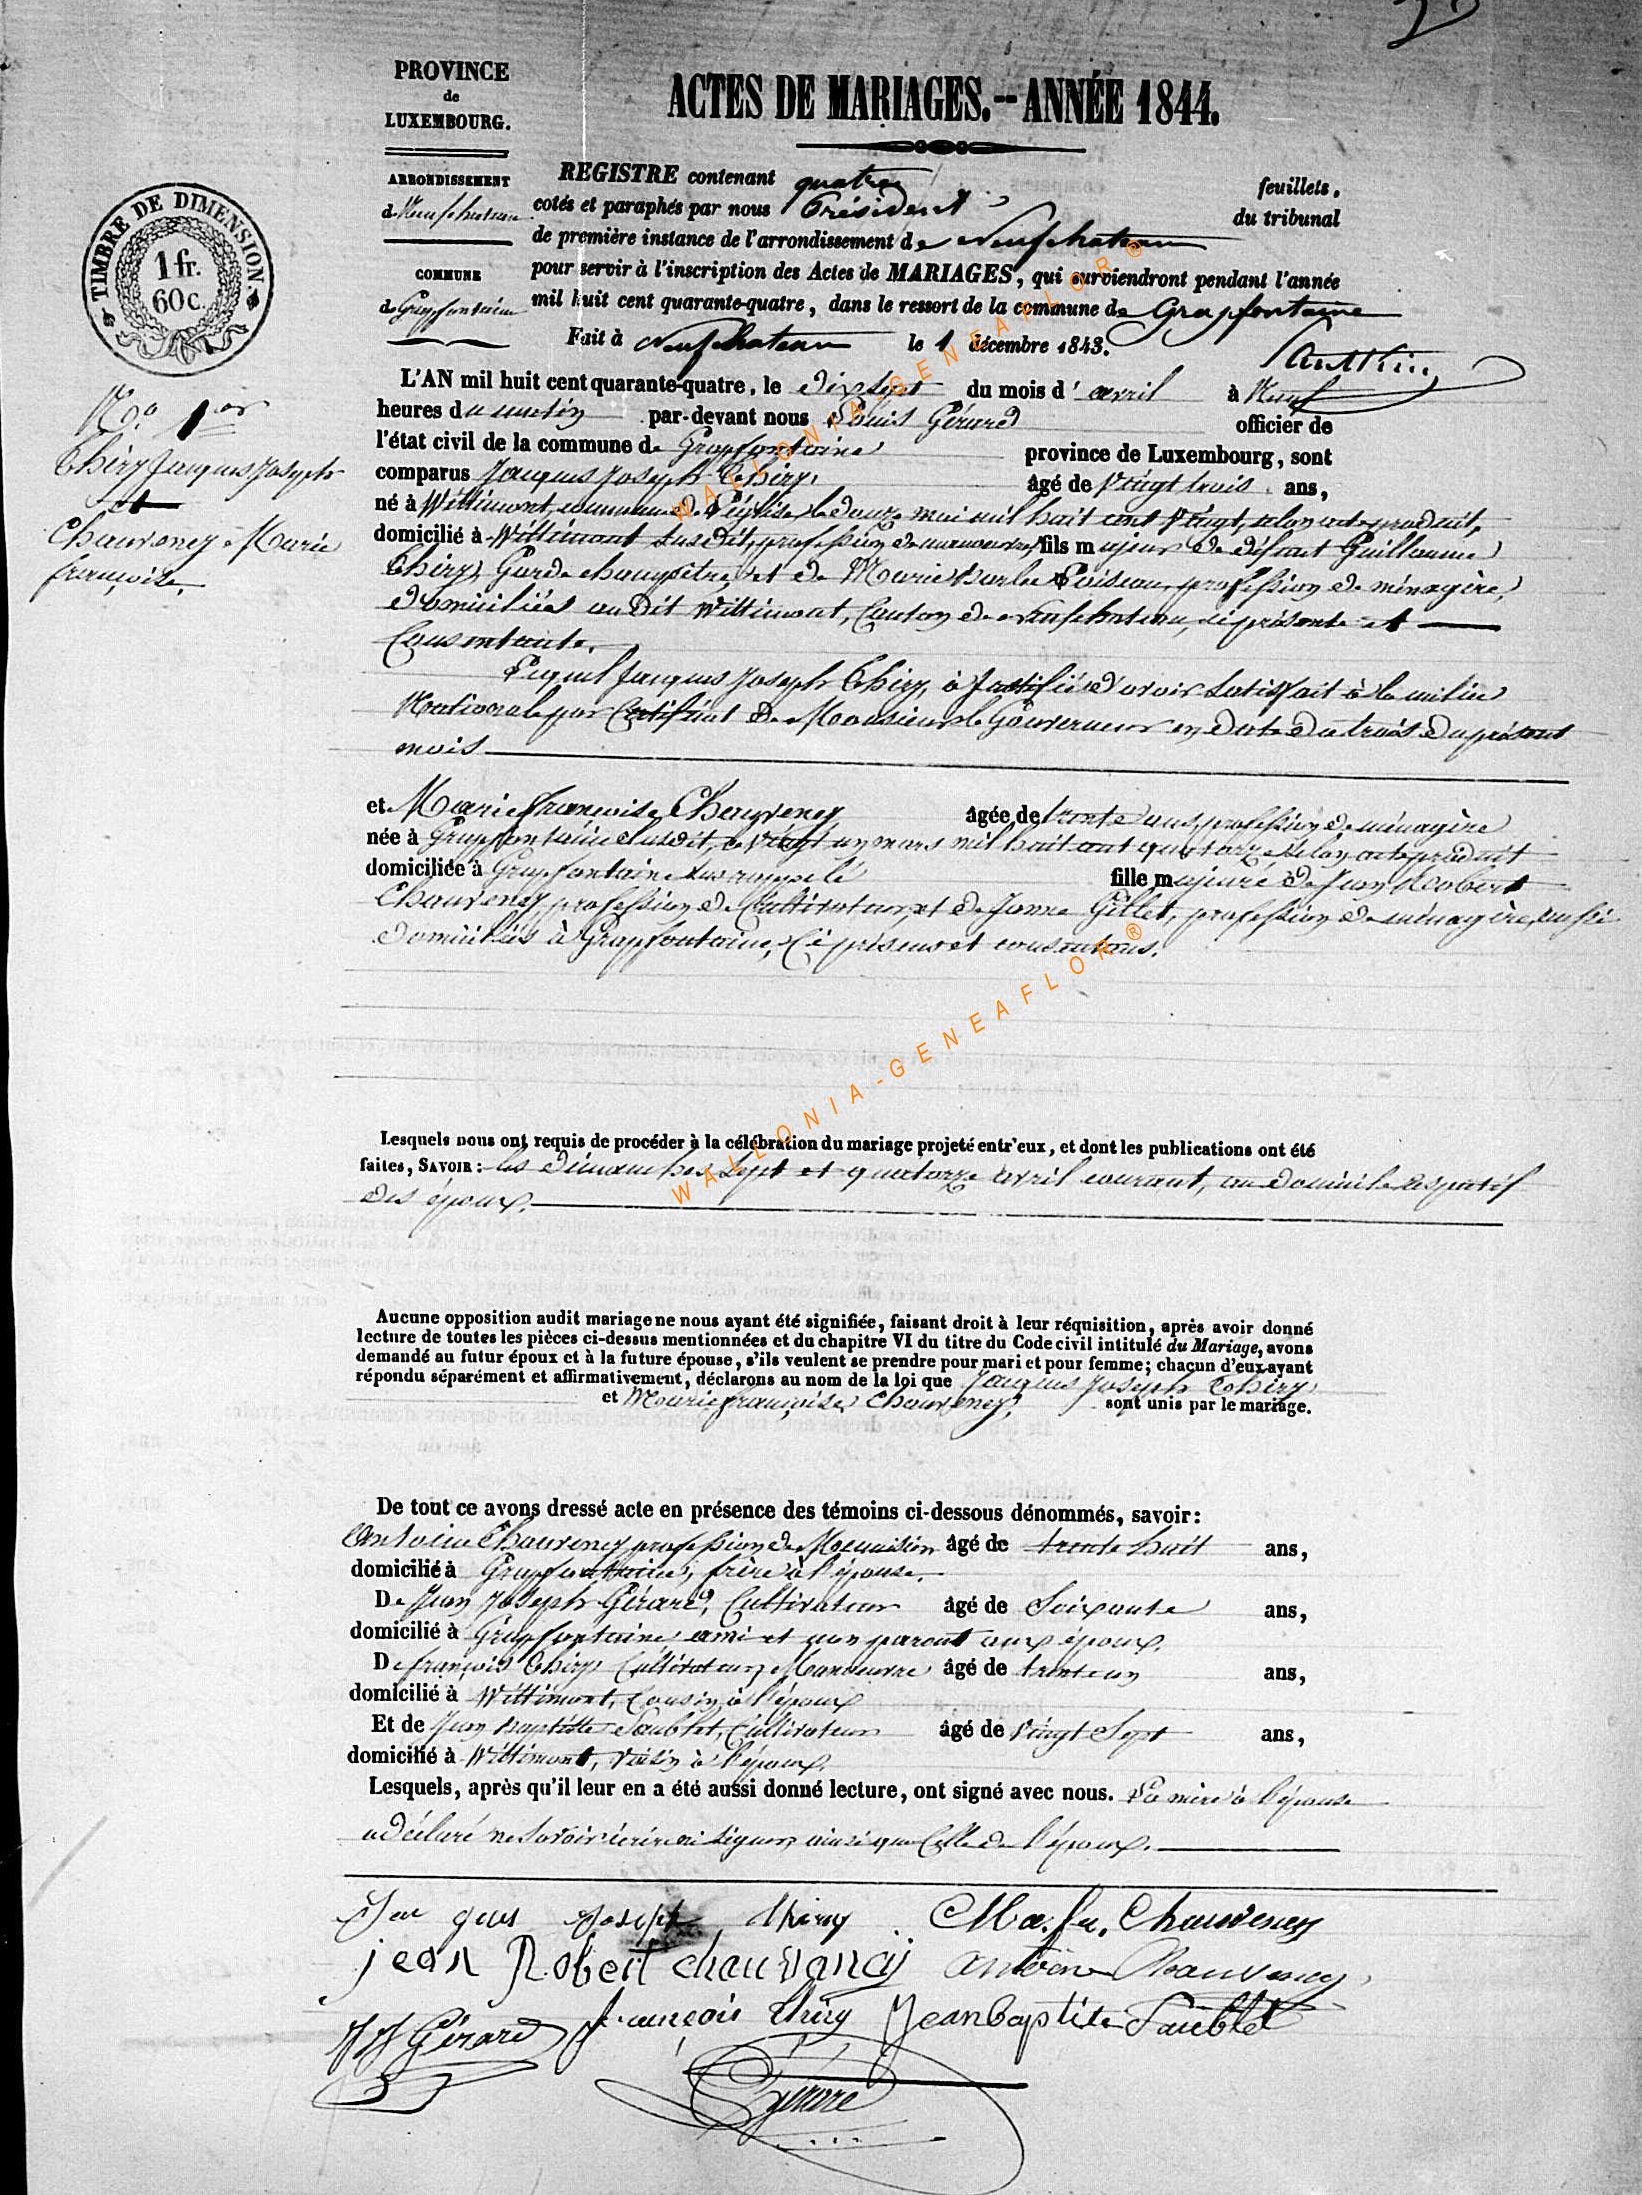 PROVINCE
de
LUXEMBOURG.
ACTES DE MARIAGES.-- ANNÉE 1844.
ARRONDISSEMENT
de Neufchateau
COMMUNE
de Grapfontaine
TIMBRE DE DIMENSION.
1 fr.
60 c.
REGISTRE contenant quatre feuillets,
cotés et paraphés par nous Président du tribunal
de première instance de l'arrondissement de Neufchateau
pour servir à l'inscription des Actes de MARIAGES, qui surviendront pendant l'année
mil huit cent quarante-quatre, dans le ressort de la commune de Grapfontaine
Fait à Neufchateau le 1 décembre 1843.
No. 1er
Thiry Jacques Joseph
et
Chauvency Marie
françoise.
L'AN mil huit cent quarante-quatre, le dix sept du mois d'avril à Neuf
heures du matin par-devant nous Louis Gérard officier de
l'état civil de la commune de Grapfontaine province de Luxembourg, sont
comparus Jacques Joseph Thiry, âgé de Vingt trois ans,
né à Wittimont, commune de Léglise, le douze mai mil huit cent Vingt, selon acte produit,
domicilié à Wittimont susdit, profession de manoeuvre, fils majeur de défunt Guillaume
Thiry, Garde champêtre, et de Marie Barbe Loiseau, profession de ménagère,
domiciliés au dit Wittimont, Canton de Neufchateau, ci présente et
Consentante.
Lequel Jacques Joseph Thiry, à Justifié d'avoir satisfait à la milice
Nationale par Certificat de Monsieur le Gouverneur en date du trois du présent
mois
et Marie françoise Chauvency âgée de trente ans, profession de ménagère
née à Grapfontaine susdit, le vingt un mars mil huit cent quatorze selon acte produit
domiciliée à Grapfontaine sus rappelé fille majeure de Jean Robert
Chauvency, profession de Cultivateur, et de Jeanne Gillet, profession de ménagère, aussi
domiciliés à Grapfontaine, Ci présens et consentans.
Lesquels nous ont requis de procéder à la célébration du mariage projeté entr'eux, et dont les publications ont été
faites, SAVOIR : les dimanches sept et quatorze avril courant, au domicile respectif
des époux.
Aucune opposition audit mariage ne nous ayant été signifiée, faisant droit à leur réquisition, après avoir donné
lecture de toutes les pièces ci-dessus mentionnées et du chapitre VI du titre du Code civil intitulé du Mariage, avons
demandé au futur époux et à la future épouse, s'ils veulent se prendre pour mari et pour femme; chacun d'eux ayant
répondu séparément et affirmativement, déclarons au nom de la loi que Jacques Joseph Thiry
et Marie françoise Chauvency, sont unis par le mariage.
De tout ce avons dressé acte en présence des témoins ci-dessous dénommés, savoir:
Antoine Chauvency profession de Menuisier âgé de trente huit ans,
domicilié à Grapfontaine, frère à l'épouse.
De Jean Joseph Gérard, Cultivateur âgé de Soixante ans,
domicilié à Grapfontaine ami et non parent aux époux,
De françois Thiry Cultivateur, Manoeuvre âgé de trente un ans,
domicilié à Wittimont, Cousin à l'époux
Et de Jean Baptiste Saublet, Cultivateur âgé de Vingt Sept ans,
domicilié à Wittimont, voisin à l'époux,
Lesquels, après qu'il leur en a été aussi donné lecture, ont signé avec nous. La mère à l'épouse
a déclaré ne savoir écrire ni signer, ainsi que Celle de l'époux.
Jacques Joseph thiry Ma. fr. Chauvency
jean Robert chauvancy antoine Chauvency
JJ Gérard françois thiry Jean Baptiste Saublet
Gérard
WALLONIA-GENEAFLOR ®
WALLONIA-GENEAFLOR ®